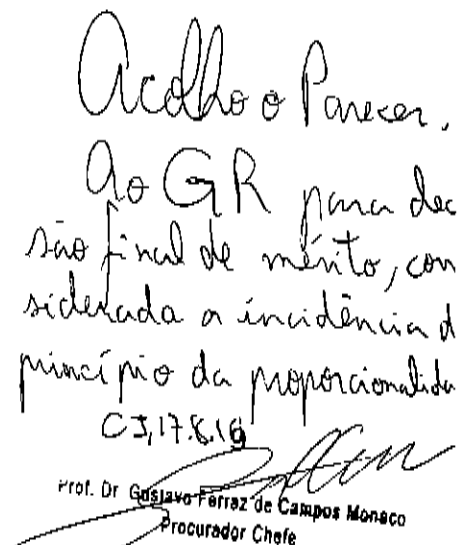 Acolho o Parecer.
Ao GR para dec
são final de mérito, con
siderada a incidência d
princípio da proporcionalida
CJ, 17.8.16
Prof. Dr. Gustavo Ferraz de Campos Monaco
Procurador Chefe